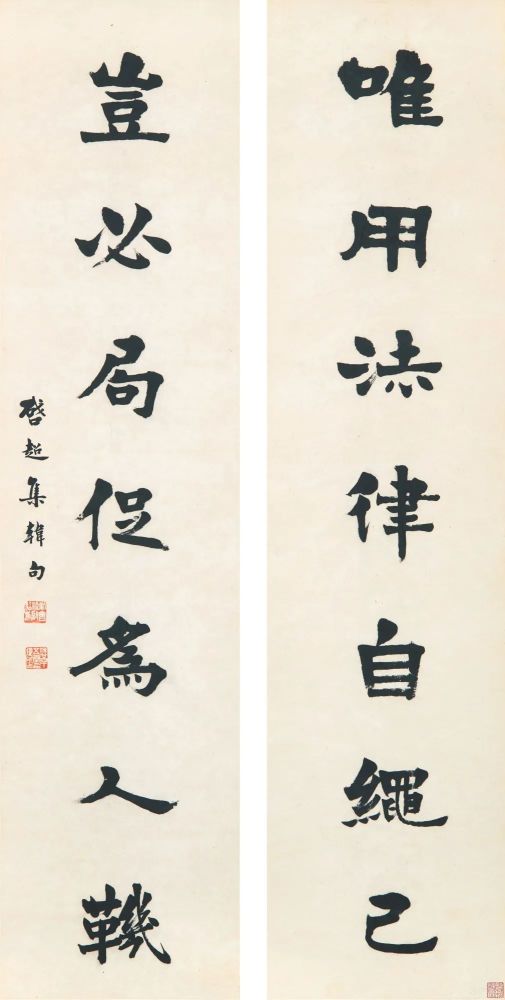 唯用法律自繩己
豈必局促為人鞿
啓超集韓句